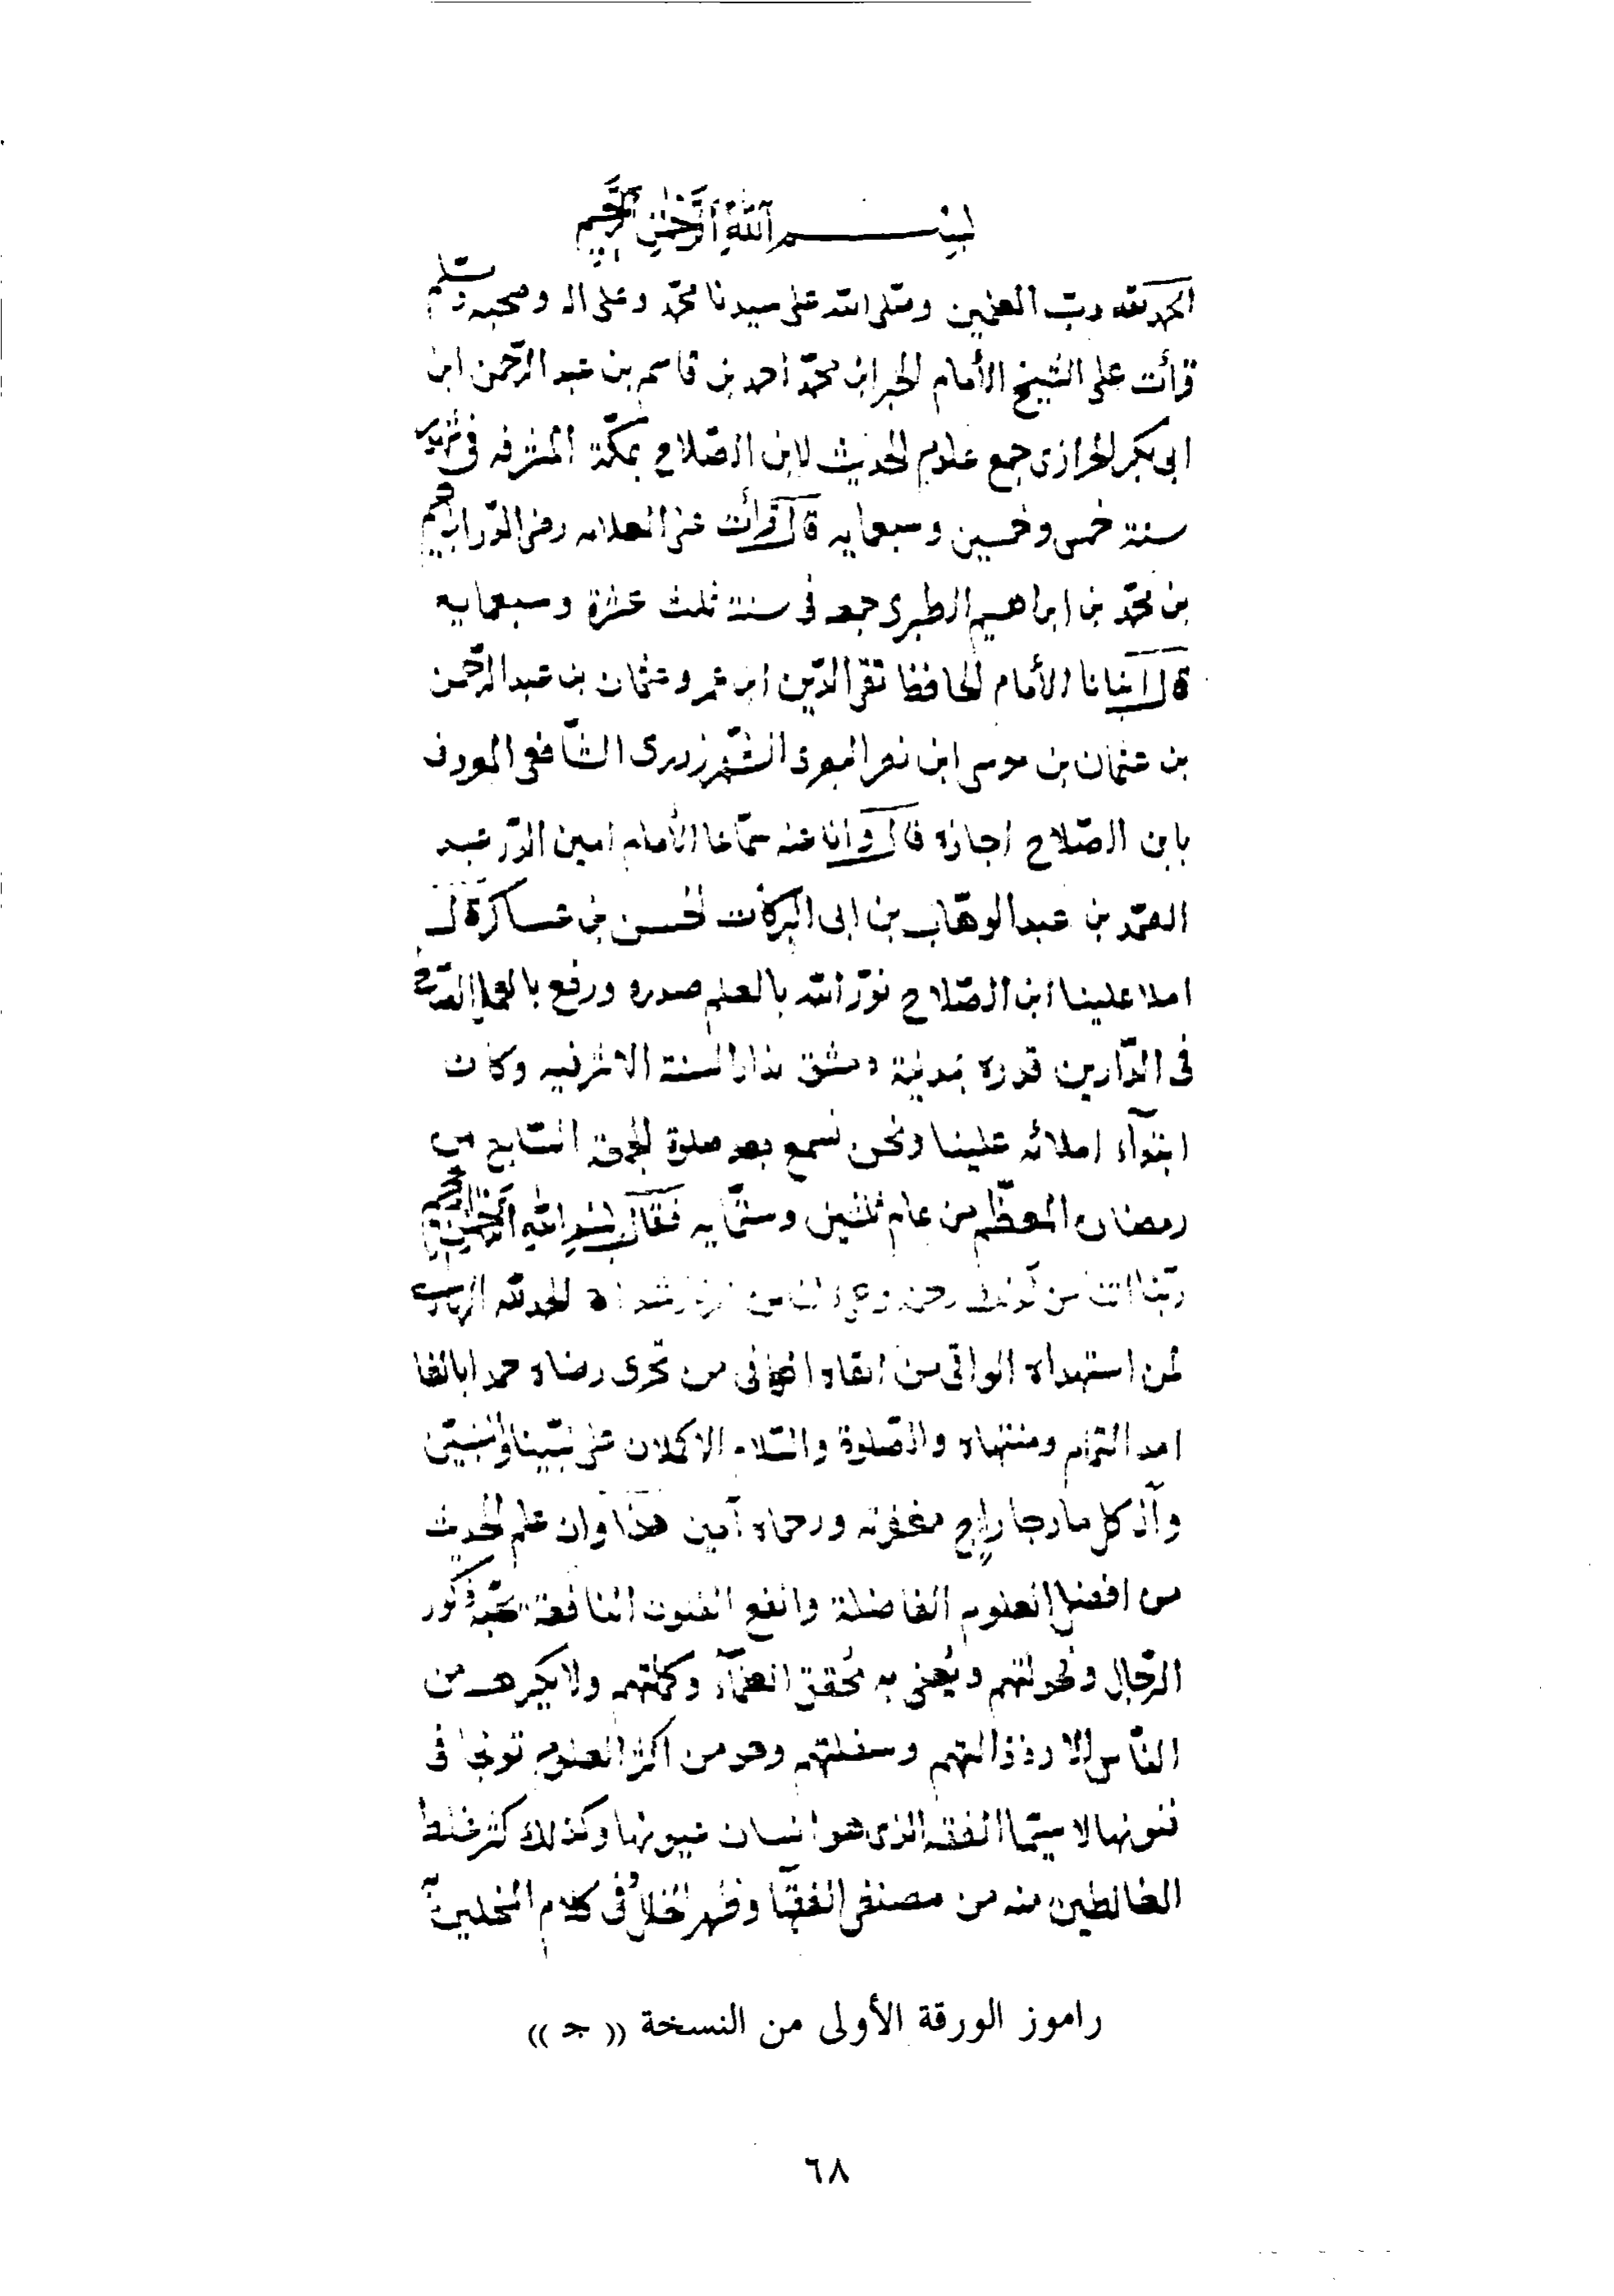 بسم الله الرحمن الرحيم
الحمد لله رب العلمين وصلى الله على سيدنا محمد وعلى اله وصحبه وسلم
قرأت على الشيخ الأمام الحبر ابن محمد احمد بن قاسم بن عبد الرحمن ابن
ابى بكر الحرازى جمع علوم الحديث لابن الصلاح بمكة المشرفه فى
سنة خمس وخمسين وسبعمايه قال قرأت على العلامه رضى الدين ابراهيم
بن محمد بن ابراهيم الطبرى جمعه فى سنة ثلث عشرة وسبعمايه
قال انبانا الأمام الحافظ تقى الدين ابو عمرو عثمان بن عبد الرحمن
بن عثمان بن موسى ابن نصر الشهرزورى الشافعى المعروف
بابن الصلاح اجازة قال وانا عنه سماعا الأمام امين الدين عبد
الصمد بن عبد الوهاب بن ابى البركات الحسن بن عساكر قال
املا علينا ابن الصلاح نور الله بالعلم صدره ورفع بالعمل الصالح
فى الدارين قدره بمدينة دمشق بدار السنة الاشرفيه وكان
ابتداء املائه علينا ونحن نسمع بعد صلوة الجمعة السابع من
رمضان المعظم من عام ثلثين وستمايه فقال بسم الله الرحمن الرحيم
ربنا اتنا من لدنك رحمة وهئ لنا من امرنا رشدا الحمد لله الهادى
لمن استهداه الواقى من اتقاه الكافى من تحرى رضاه حمدا بالغا
امد التمام ومنتهاه والصلوة والسلام الاكملان على نبينا والنبيين
وآل كل ما رجا راج مغفرته ورحماه آمين هذا وان علم الحديث
من افضل العلوم الفاضلة وانفع الفنون النافعة يحبه ذكور
الرجال وفحولتهم ويعنى به محققو العلماء وكملتهم ولا يكرهه من
الناس الا رذالتهم وسفلتهم وهو من اكثر العلوم تولجا فى
فنونها لا سيما الفقه الذى هو انسان عيونها وكذلك كثر غلط
الغالطين منه من مصنفى الفقهاء وظهر الخلل فى كلام المخلين
راموز الورقة الأولى من النسخة (( جـ ))
٦٨